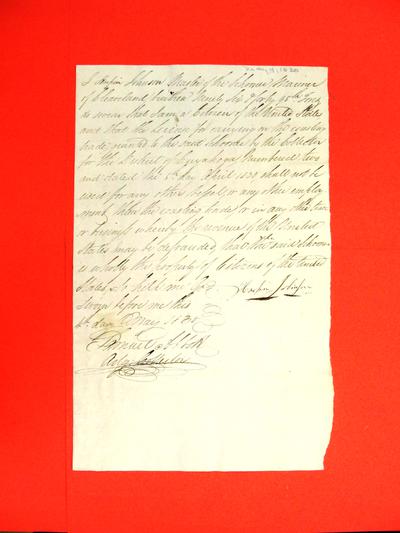 I Harpin Johnson Master of the Schooner Mariner
of Cleaveland burthen Ninety Six
do swear that I am a Citizen of the United States
and that the License for carrying on the coasting
trade granted to the said Schooner by the Collector
for the District of Cuyahoga Numbered two
and dated the day April 1830 shall not be
used for any other vessel or any other employ
ment than the coasting trade or in any other trade
or business whereby the revenues of the United
States may be defrauded that the said Schooner
is wholly the property of Citizens of the United
States So help me God
Harpin Johnson
Sworn before me this
day May 1830
Samuel